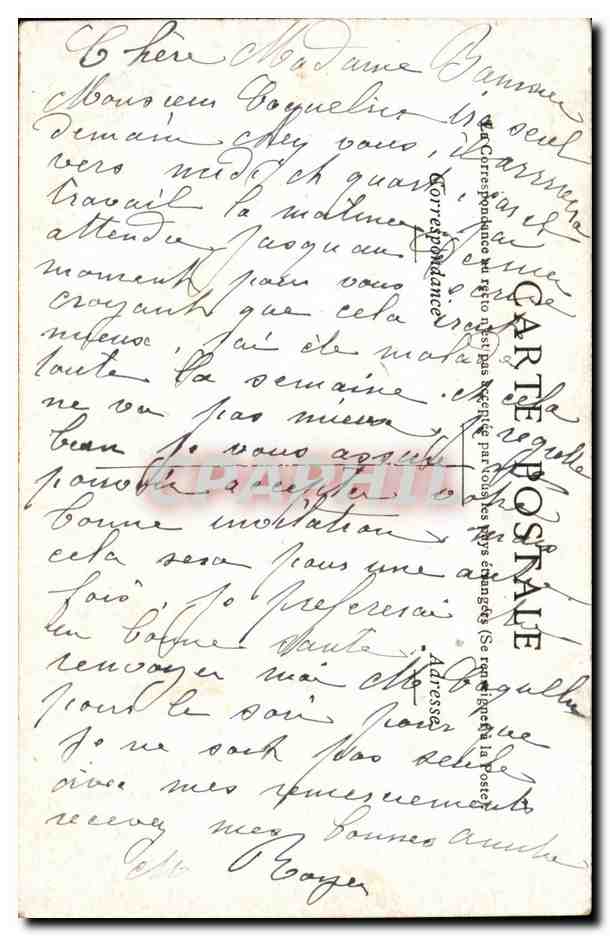 Chère Madame
Monsieur Coquelin ira seul
demain chez vous, il arrivera
vers midi et quart,
travail la matinée, j'ai
attendu jusquau dernier
moment pour vous écrire
croyant que cela irait
mieux, j'ai été malade
toute la semaine et cela
ne va pas mieux, je regrette
bien je vous assure
pouvoir accepter votre
bonne invitation mais
cela sera pour une autre
fois, je préfèrerai
en bonne santé.
renvoyer moi Mr
pour le soir pour que
je ne soit pas seule
avec mes remerciements
recevez mes bonnes amitiés
M Royer
CARTE POSTALE
La Correspondance au recto n'est pas acceptée par tous les pays étrangers (Se renseigner à la Poste)
Correspondance
Adresse
CPAPHIL